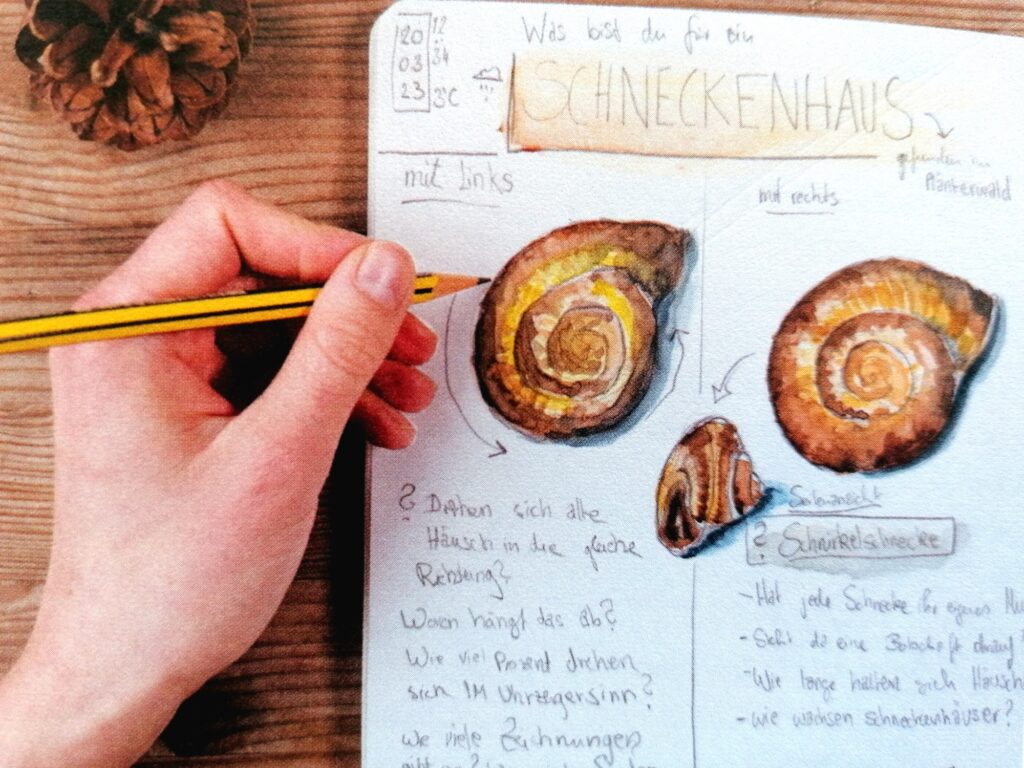 20
03
23
12
34
3°C
Was bist du für ein
SCHNECKENHAUS
gefunden im
Plänterwald
mit Links
mit rechts
? Drehen sich alle
Häusch in die gleiche
Richtung?
Woran hängt das ab?
Wie viel Prozent drehen
sich IM Uhrzegersinn?
Wie viele Zeichnungen
Seitenansicht
? Schnirkelschnecke
- Hat jede Schnecke ihr eigenes
- Sieht da eine Botschaft drauf?
- Wie lange halten sich Häusch
- wie wachsen Schneckenhäuser?